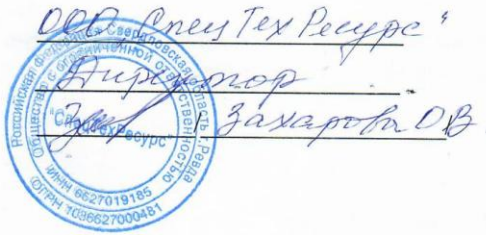 ООО „СпецТехРесурс"
Директор
/ Захарова О.В.
Российская Федерация Свердловская область г. Ревда
Общество с ограниченной ответственностью
"СпецТехРесурс"
ИНН 6627019185
ОГРН 1036627000481